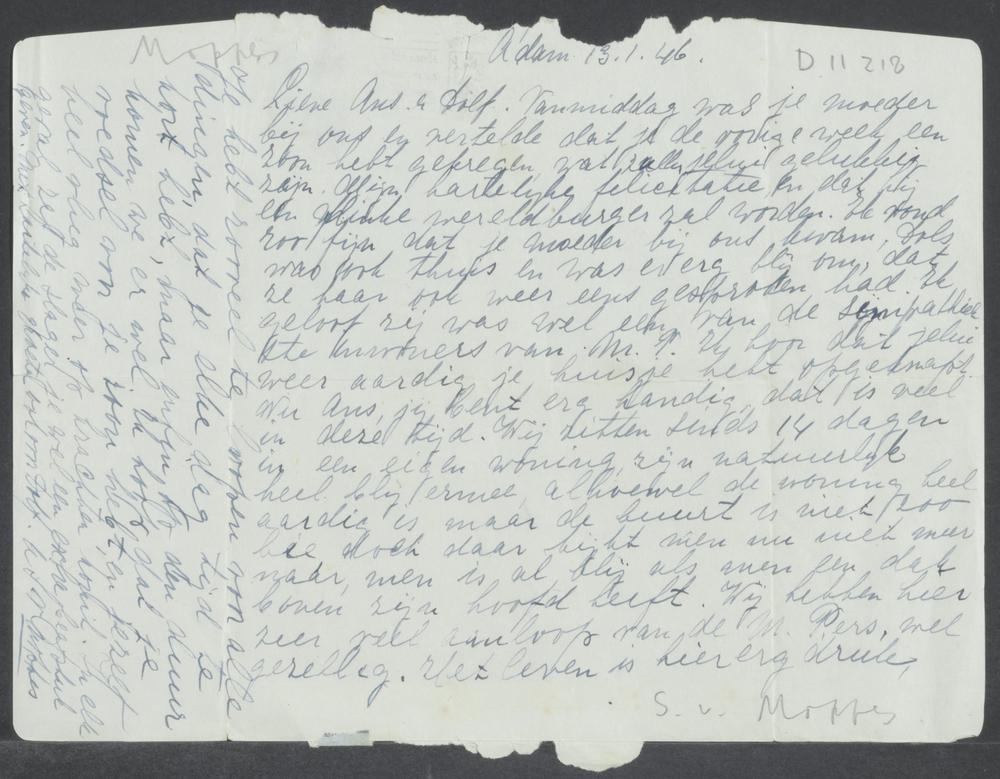 Moppes
D II 218
A'dam 13.1.46.
Lieve Ans & Dolf. Vanmiddag was je moeder
bij ons en vertelde dat je de vorige week een
zoon hebt gekregen, wat zullen jelui gelukkig
zijn. Mijn hartelijke felicitatie en dat hij
een flinke wereldburger zal worden. Ik vond
zoo fijn dat je moeder bij ons kwam, Dols
was ook thuis en was erg blij om, dat
ze haar ook weer eens gesproken had. Ik
geloof zij was wel een van de simpathiek
ste inwoners van M. P. Ik hoor dat jelui
weer aardig je huisje hebt opgemaakt.
Nu Ans, jij bent erg handig, dat is veel
in deze tijd. Wij zitten sinds 14 dagen
in een eigen woning, zijn natuurlijk
heel blij ermee, alhoewel de woning heel
aardig is maar de buurt is niet zoo
doch daar kijkt men nu niet meer
naar, men is al blij als men een dak
boven zijn hoofd heeft. Wij hebben hier
zeer veel aanloop van de M. Pers, wel
gezellig. Het leven is hier erg druk,
Je hebt zooveel te loopen voor alle
dingen, dat je elke dag tijd te
kort hebt, maar enfin op den duur
komen we er wel. Ik hoop dat je
voedsel voor je zoon hebt, en jezelf
heel vlug weer op krachten komt. In elk
geval zet de slager je wel een
Moppes
S. v. Moppes